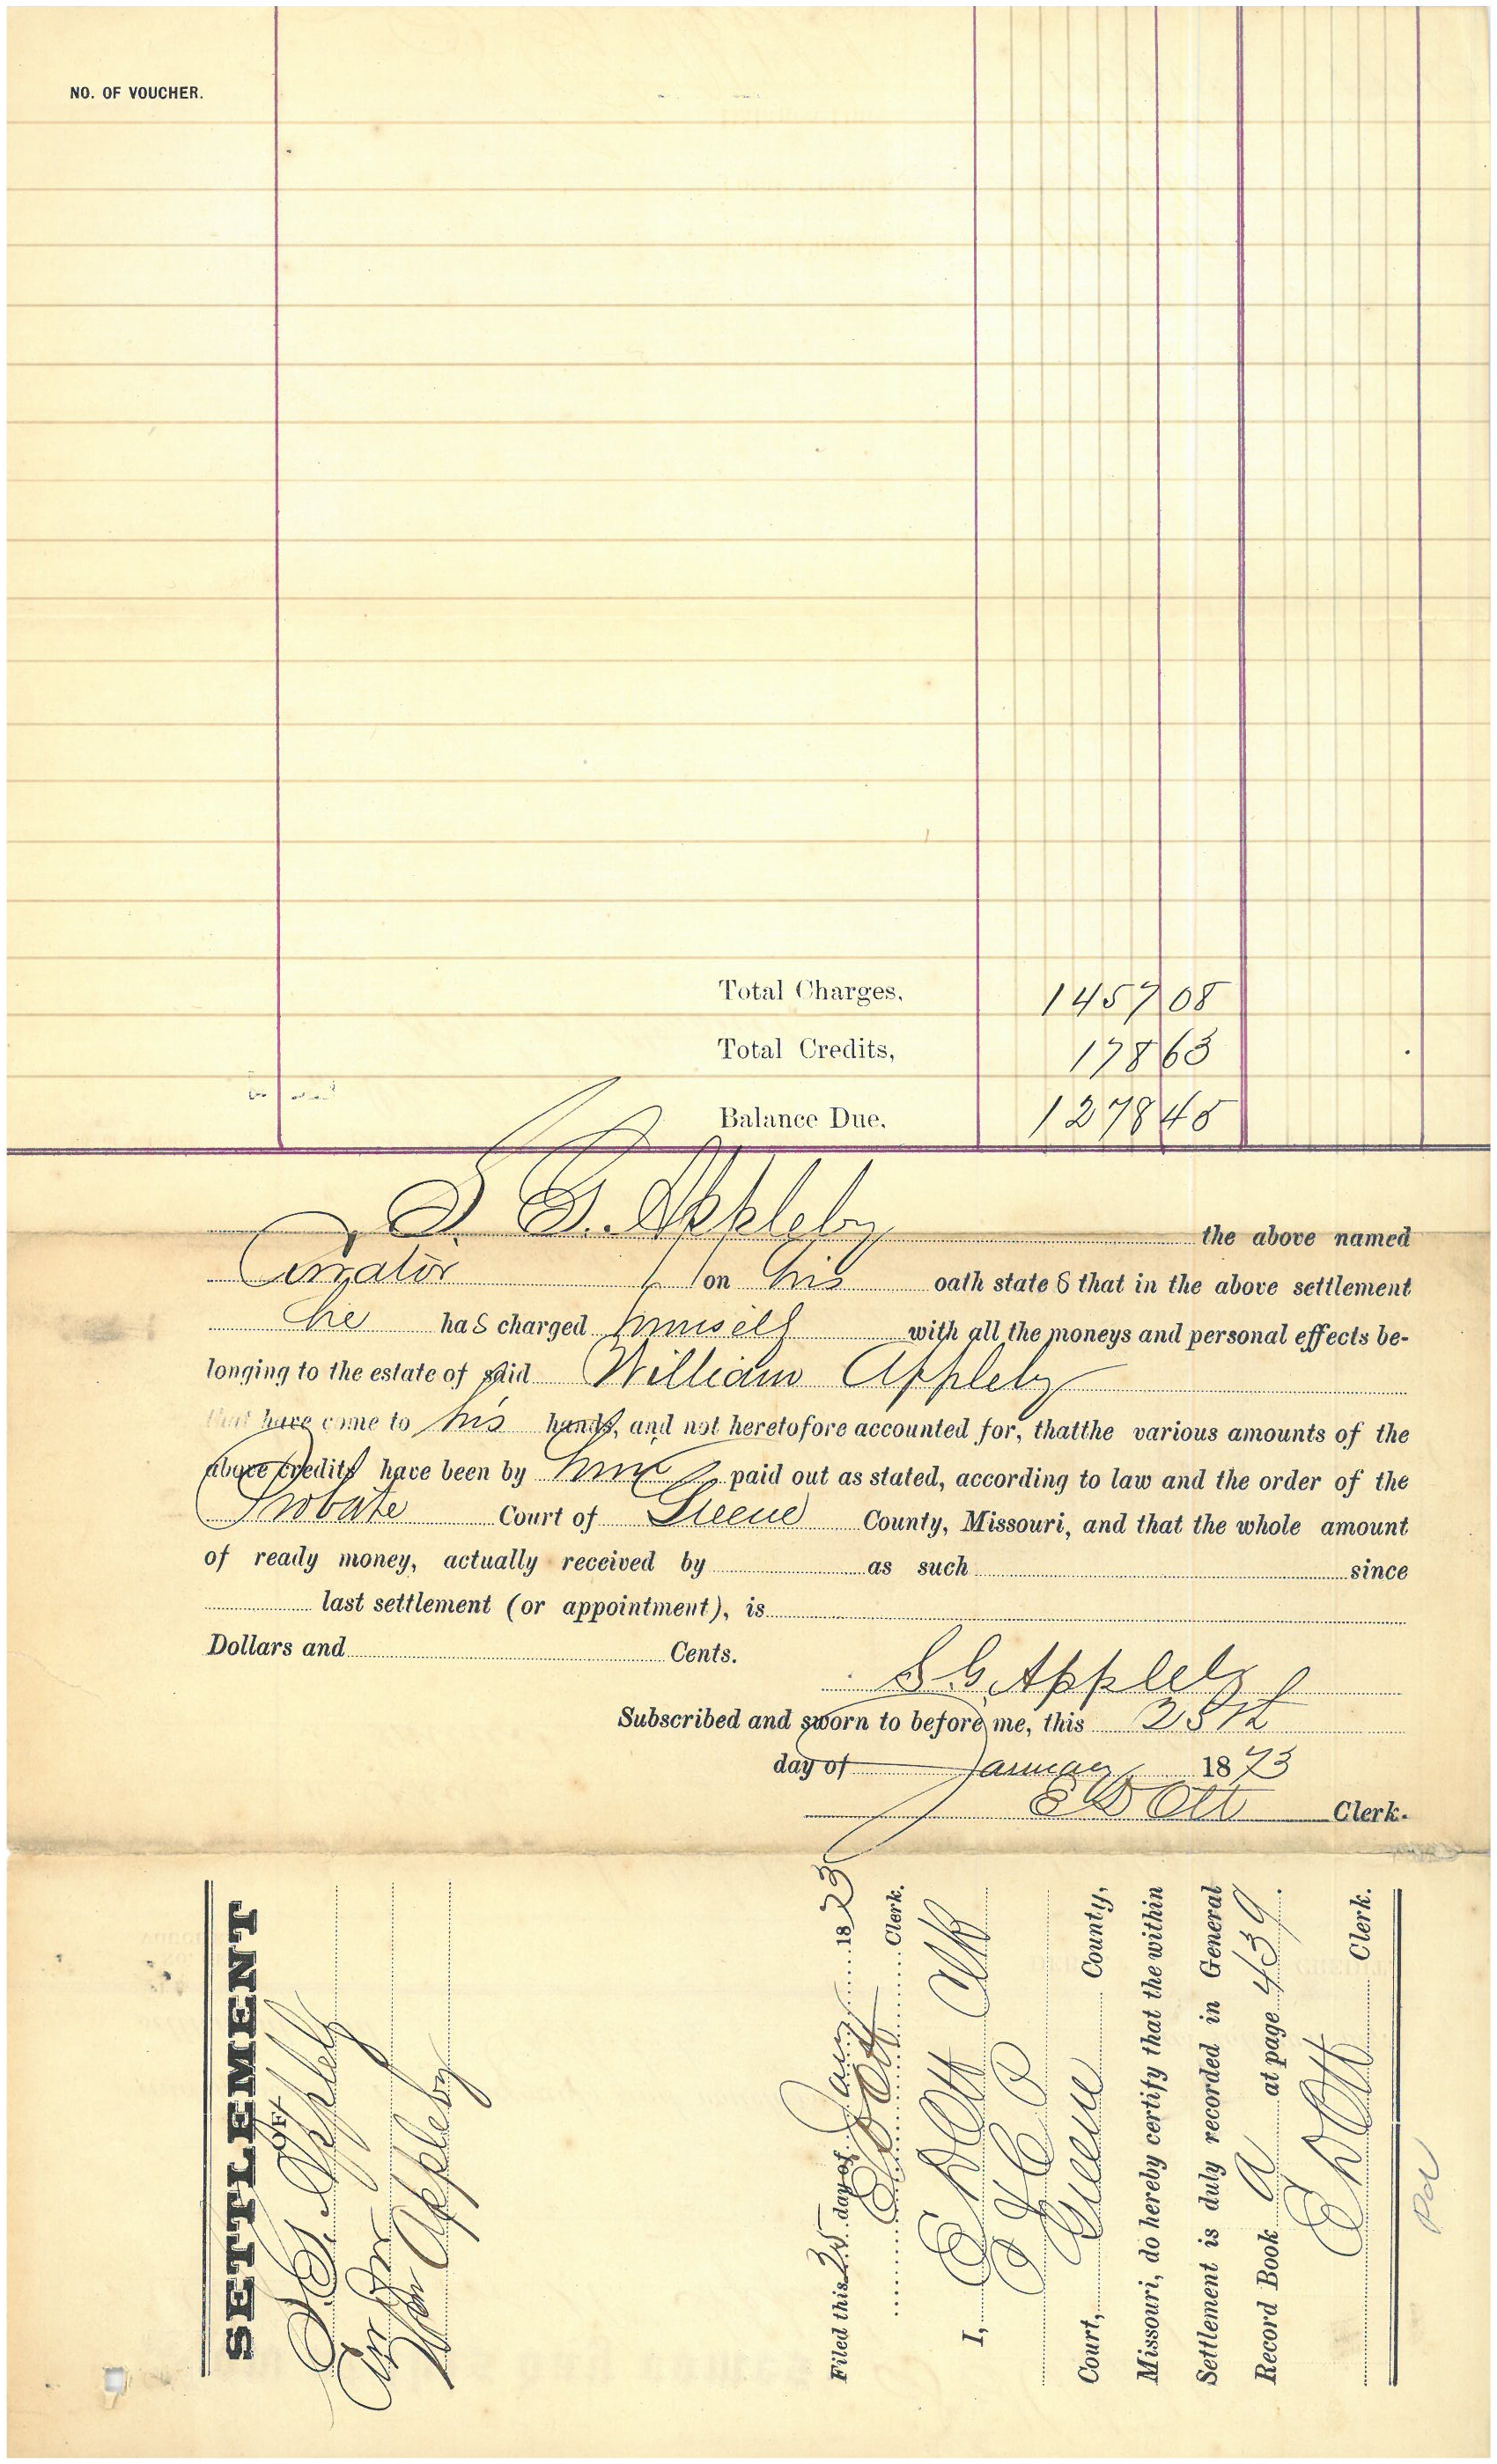 NO. OF VOUCHER.
Total Charges, 1457 08
Total Credits, 178 63
Balance Due, 1278 45
S. G. Appleby the above named
Curator on his oath state s that in the above settlement
he has charged himself with all the moneys and personal effects be-
longing to the estate of said William Appleby
that have come to his hands, and not heretofore accounted for, thatthe various amounts of the
above credits have been by him paid out as stated, according to law and the order of the
Probate Court of Greene County, Missouri, and that the whole amount
of ready money, actually received by as such since
last settlement (or appointment), is
Dollars and Cents.
S. G. Appleby
Subscribed and sworn to before me, this 25th
day of January 1873
E D Ott Clerk.
SETTLEMENT
OF
S. G. Appleby
Cur of
Wm Appleby
Filed this 25 day of Jany 1873
E D Ott Clerk.
I, E D Ott Clk
Court, Greene County,
Missouri, do hereby certify that the within
Settlement is duly recorded in General
Record Book A at page 439.
E D Ott Clerk.